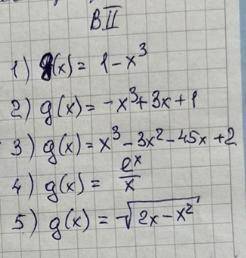 BII
1) g(x) = 1 - x³
2) g(x) = -x³ + 3x + 1
3) g(x) = x³ - 3x² - 45x + 2
4) g(x) = eˣ/x
5) g(x) = √(2x - x²)